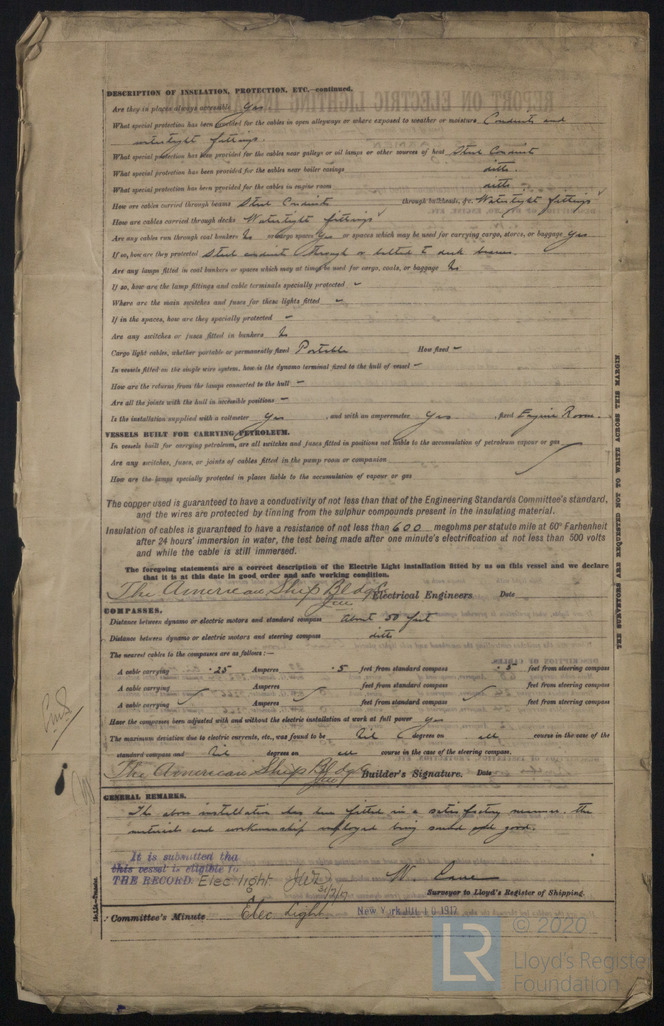 DESCRIPTION OF INSULATION, PROTECTION, ETC.—continued.
Are they in places always accessible Yes
What special protection has been provided for the cables in open alleyways or where exposed to weather or moisture Conduits and
watertight fittings.
What special protection has been provided for the cables near galleys or oil lamps or other sources of heat Steel Conduit
What special protection has been provided for the cables near boiler casings ditto.
What special protection has been provided for the cables in engine room ditto –
How are cables carried through beams Steel Conduits through bulkheads, &c. Watertight fittings
How are cables carried through decks Watertight fittings
Are any cables run through coal bunkers No or cargo spaces Yes or spaces which may be used for carrying cargo, stores, or baggage Yes
If so, how are they protected Steel conduit through or bolted to deck beams
Are any lamps fitted in coal bunkers or spaces which may at times be used for cargo, coals, or baggage No
If so, how are the lamp fittings and cable terminals specially protected –
Where are the main switches and fuses for these lights fitted –
If in the spaces, how are they specially protected –
Are any switches or fuses fitted in bunkers No
Cargo light cables, whether portable or permanently fixed Portable How fixed –
In vessels fitted on the single wire system, how is the dynamo terminal fixed to the hull of vessel –
How are the returns from the lamps connected to the hull –
Are all the joints with the hull in accessible positions –
Is the installation supplied with a voltmeter Yes , and with an amperemeter Yes , fixed Engine Room.
VESSELS BUILT FOR CARRYING PETROLEUM.
In vessels built for carrying petroleum, are all switches and fuses fitted in positions not liable to the accumulation of petroleum vapour or gas
Are any switches, fuses, or joints of cables fitted in the pump room or companion
How are the lamps specially protected in places liable to the accumulation of vapour or gas
The copper used is guaranteed to have a conductivity of not less than that of the Engineering Standards Committee's standard,
and the wires are protected by tinning from the sulphur compounds present in the insulating material.
Insulation of cables is guaranteed to have a resistance of not less than 600 megohms per statute mile at 60° Farhenheit
after 24 hours' immersion in water, the test being made after one minute's electrification at not less than 500 volts
and while the cable is still immersed.
The foregoing statements are a correct description of the Electric Light installation fitted by us on this vessel and we declare
that it is at this date in good order and safe working condition.
The American Ship Bldg Co Electrical Engineers Date
COMPASSES.
Distance between dynamo or electric motors and standard compass About 50 feet
Distance between dynamo or electric motors and steering compass ditto
The nearest cables to the compasses are as follows:—
A cable carrying .25 Amperes .5 feet from standard compass .5 feet from steering compass
A cable carrying Amperes feet from standard compass feet from steering compass
A cable carrying Amperes feet from standard compass feet from steering compass
Have the compasses been adjusted with and without the electric installation at work at full power Yes
The maximum deviation due to electric currents, etc., was found to be Nil degrees on all course in the case of the
standard compass and Nil degrees on all course in the case of the steering compass.
The American Ship Bldg Co Builder's Signature. Date
GENERAL REMARKS.
The above installation has been fitted in a satisfactory manner. the
material and workmanship employed being sound and good.
It is submitted tha
this vessel is eligible fo
THE RECORD. Elec light
Surveyor to Lloyd's Register of Shipping.
Committee's Minute Elec Light New York JUL 1917
THE SURVEYORS ARE REQUESTED NOT TO WRITE ACROSS THIS MARGIN
LR
© 2020
Lloyd's Register
Foundation